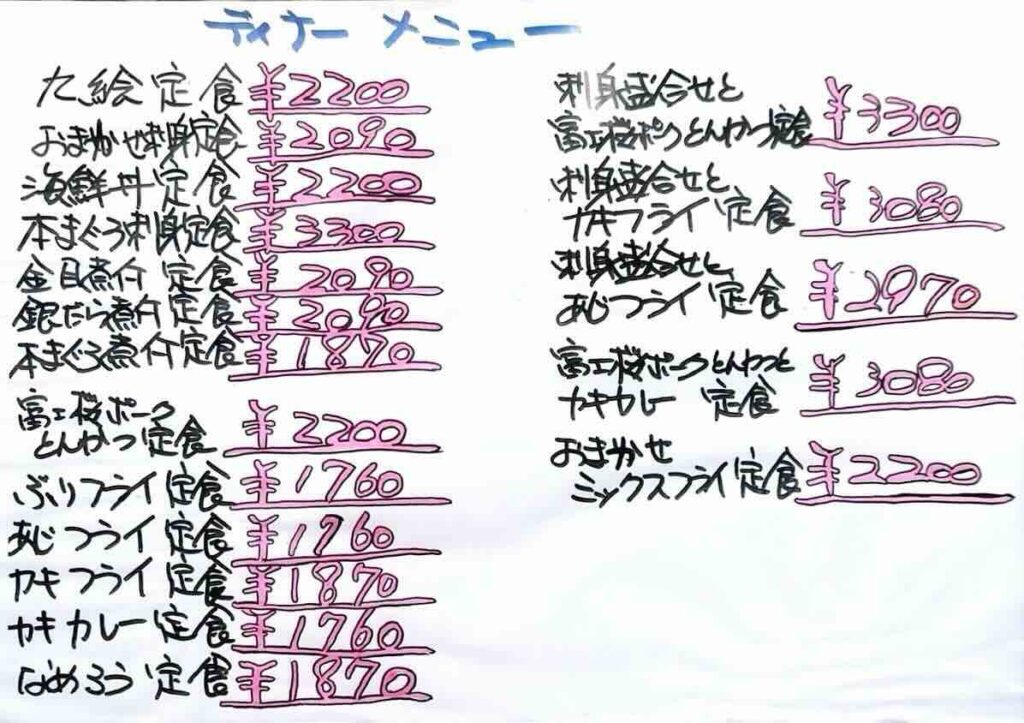 ディナーメニュー
九絵定食 ¥2200
おまかせ刺身定食 ¥2090
海鮮丼定食 ¥2200
本まぐろ刺身定食 ¥3300
金目煮付定食 ¥2090
銀だら煮付定食 ¥2090
本まぐろ煮付定食 ¥1870
富士桜ポーク
とんかつ定食 ¥2200
ぶりフライ定食 ¥1760
あじフライ定食 ¥1760
カキフライ定食 ¥1870
カキカレー定食 ¥1760
なめろう定食 ¥1870
刺身盛合せと
富士桜ポークとんかつ定食 ¥3300
刺身盛合せと
カキフライ定食 ¥3080
刺身盛合せと
あじフライ定食 ¥2970
富士桜ポークとんかつと
カキカレー定食 ¥3080
おまかせ
ミックスフライ定食 ¥2200